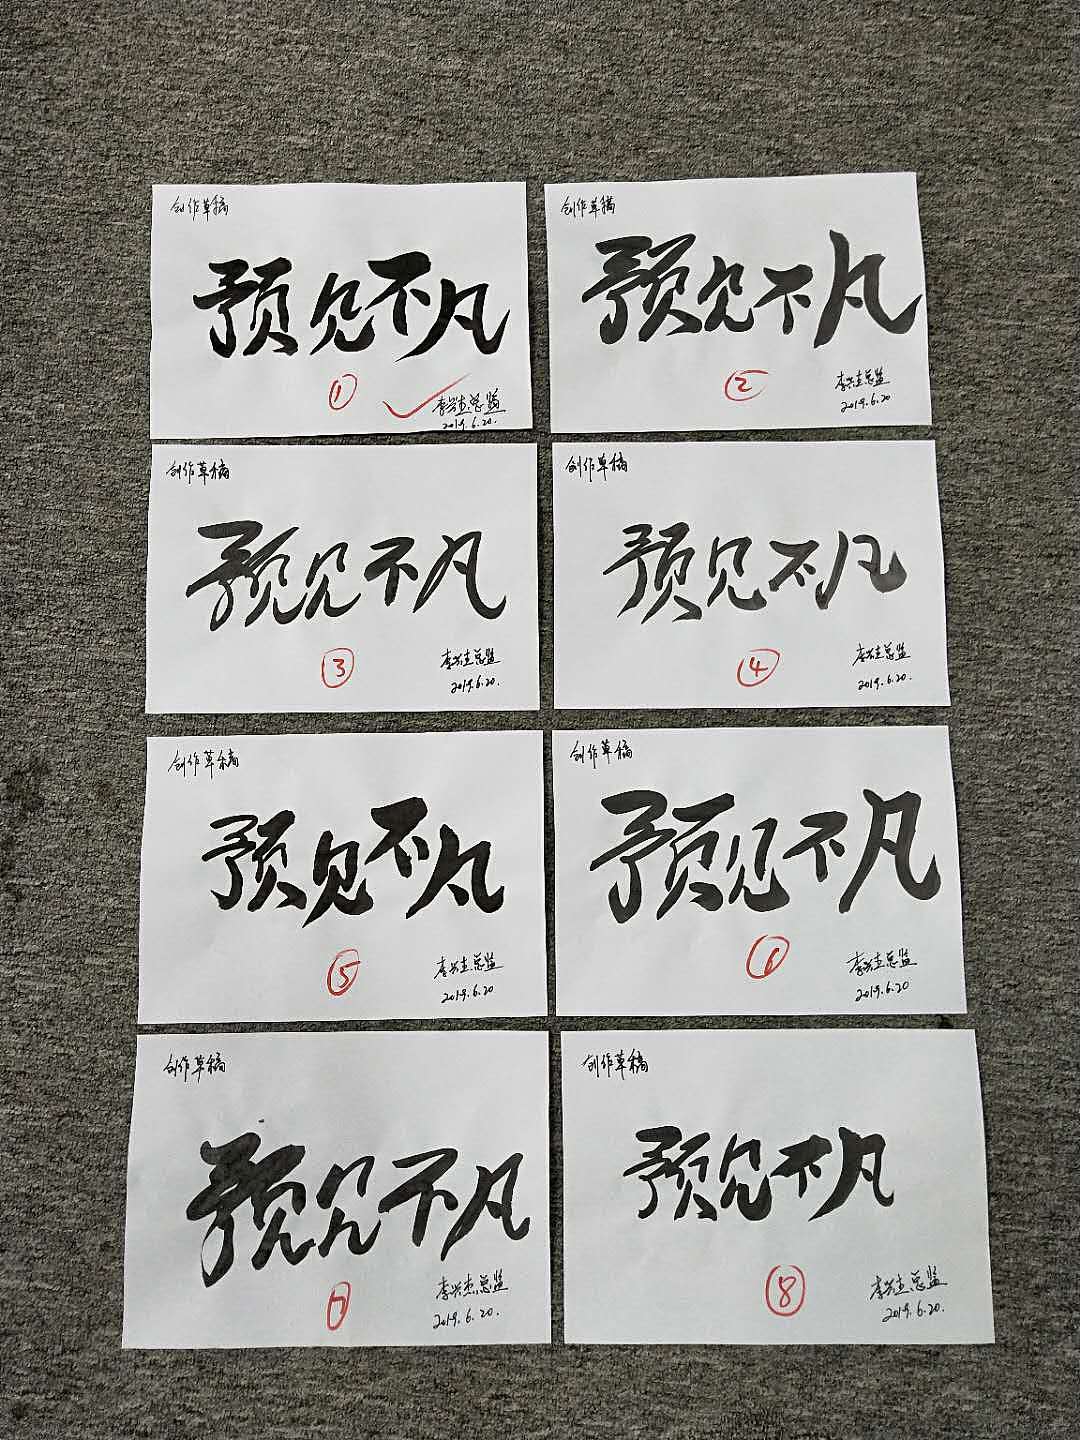 创作草稿
预见不凡
①
李兴杰总监
2019.6.20.
创作草稿
预见不凡
②
李兴杰总监
2019.6.20
创作草稿
预见不凡
③
李兴杰总监
2019.6.20.
创作草稿
预见不凡
④
李兴杰总监
2019.6.20.
创作草稿
预见不凡
⑤
李兴杰总监
2019.6.20
创作草稿
预见不凡
⑥
李兴杰总监
2019.6.20
创作草稿
预见不凡
⑦
李兴杰总监
2019.6.20.
创作草稿
预见不凡
⑧
李兴杰总监
2019.6.20.